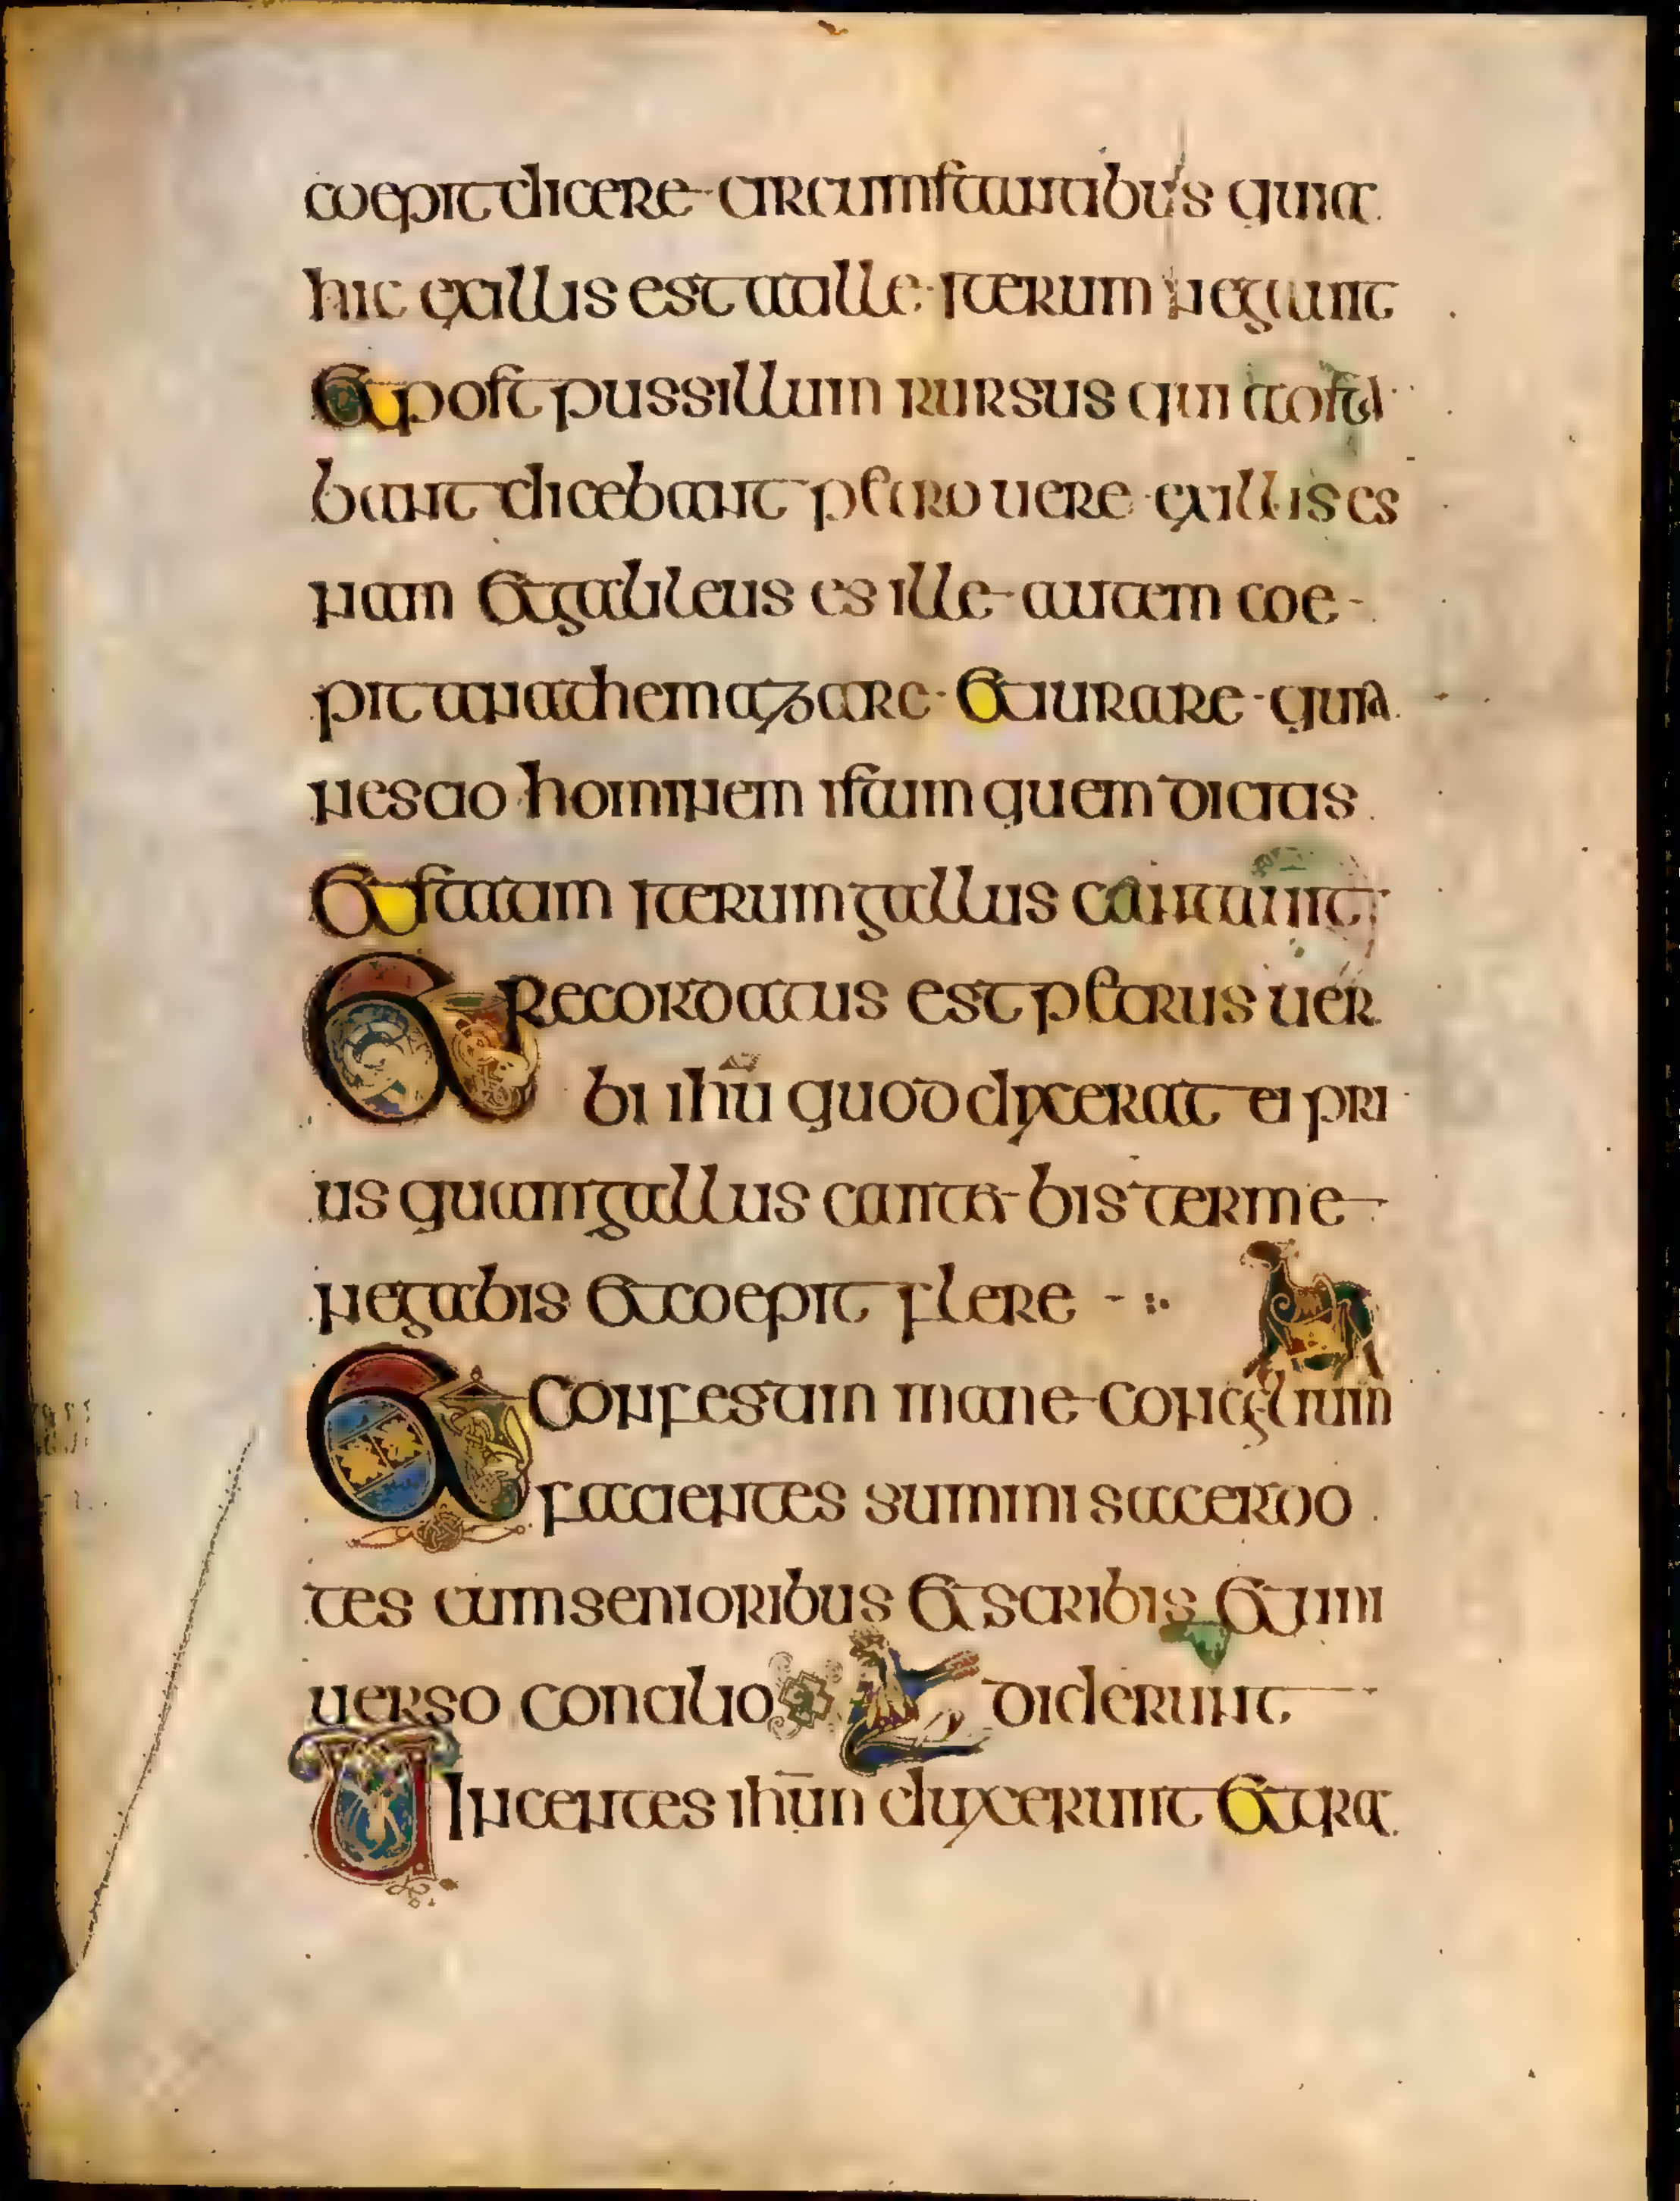 coepit dicere circumstantibus quia
hic exillis est at ille iterum negauit
Et post pussillum rursus qui astista
bant dicebant petro uere exillis es
nam et galileus es ille autem coe
pit anathemazare et iurare quia
nescio hominem istum quem dicitis
Et statim iterum gallus cantauit
Et recordatus est petrus uer
bi ihu quod dixerat ei pri
us quam gallus cantet bis ter me
negabis et coepit flere
Et confestim mane concilium
facientes summi sacerdo
tes cum senioribus et scribis et uni
uerso concilio diderunt
Uincentes ihun duxerunt et tra